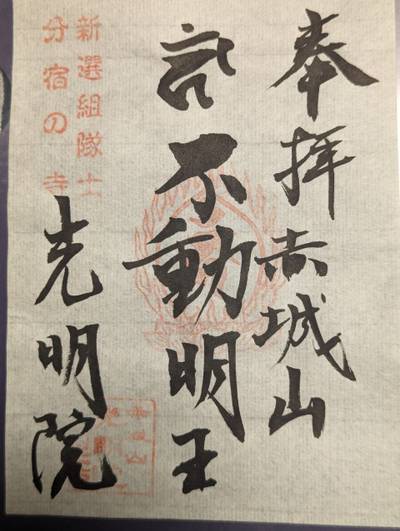 奉拝赤城山
不動明王
新選組隊士
分宿の寺
光明院